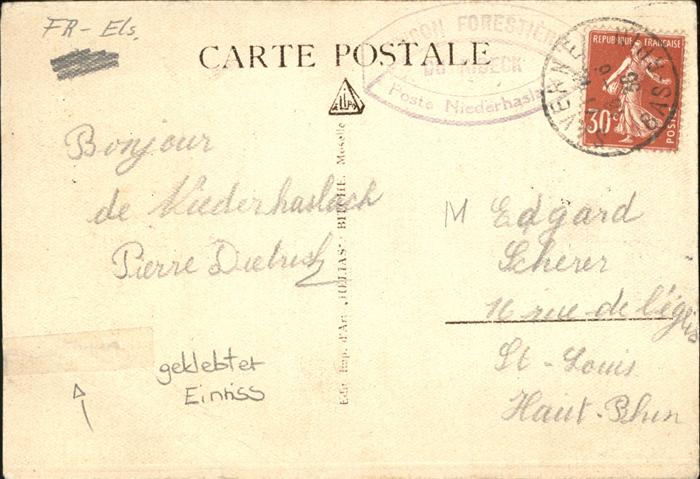 FR-Els.
CARTE POSTALE
FORESTIÈRE
Poste Niederhasla
REPUBLIQUE FRANCAISE
30c
POSTES
Bonjour
de Niederhaslach
Pierre Dietrich
Edit. Imp. d'Art "HELIAS" BITCHE, Moselle
M Edgard
Scherer
16 rue de l'église
St-Louis
Haut-Rhin
geklebter
Einriss